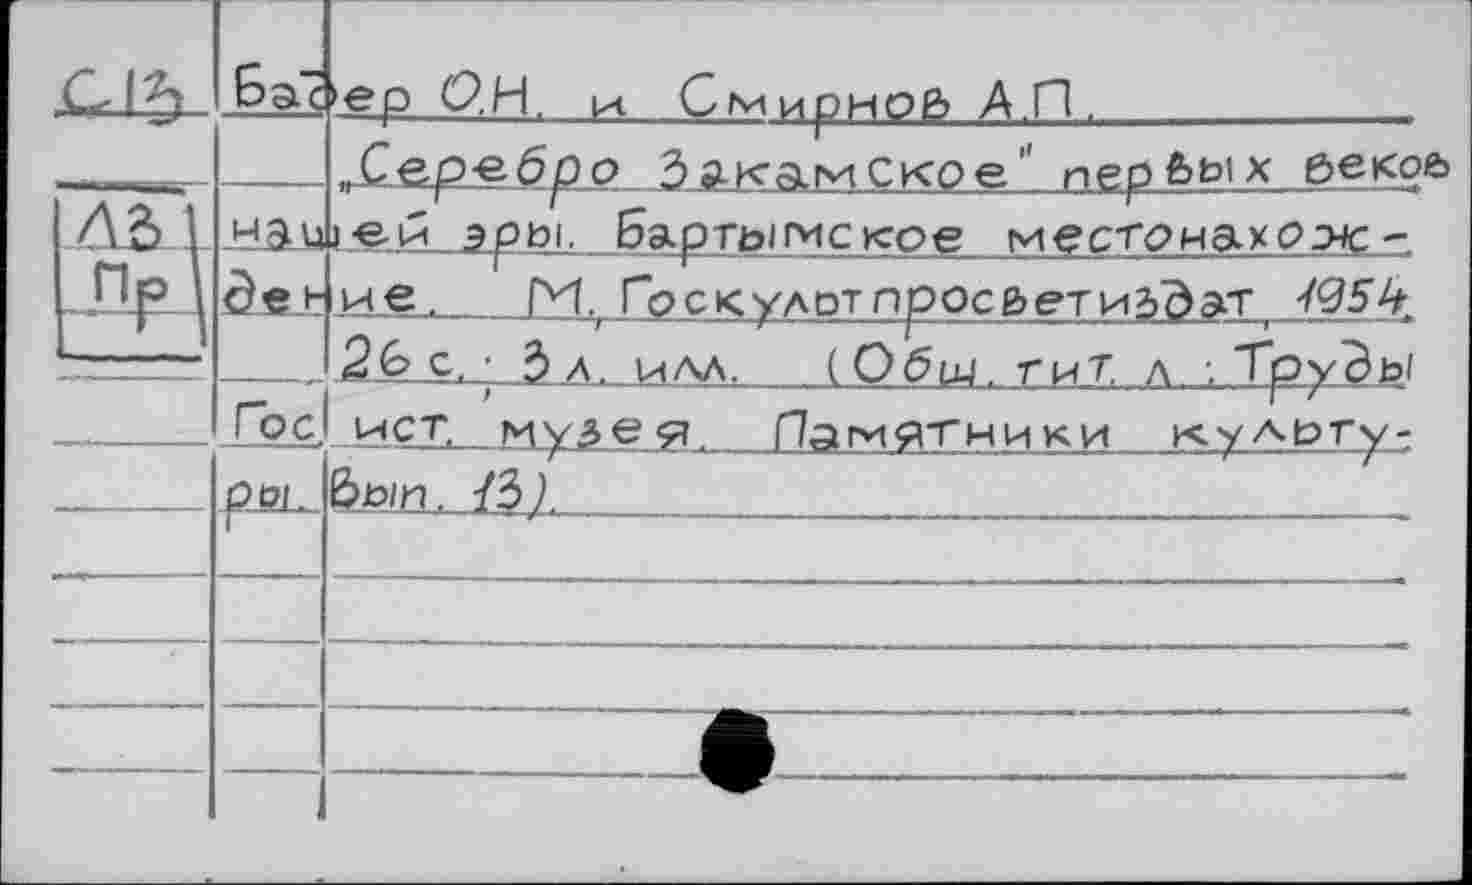 С13 Бадер О.Н. и Смирнов А.П.
„Серебро Закамское" первых веков
ЛЗ
нашей эры. Бартымское местонахож-
Пр
дение. М., Госкультпросветиздат, 1954.
26 с.; 3 л. илл. (Общ. тит. л.: Труды
Гос. ист. музея. Памятники культу-
ры. Вып. 13).